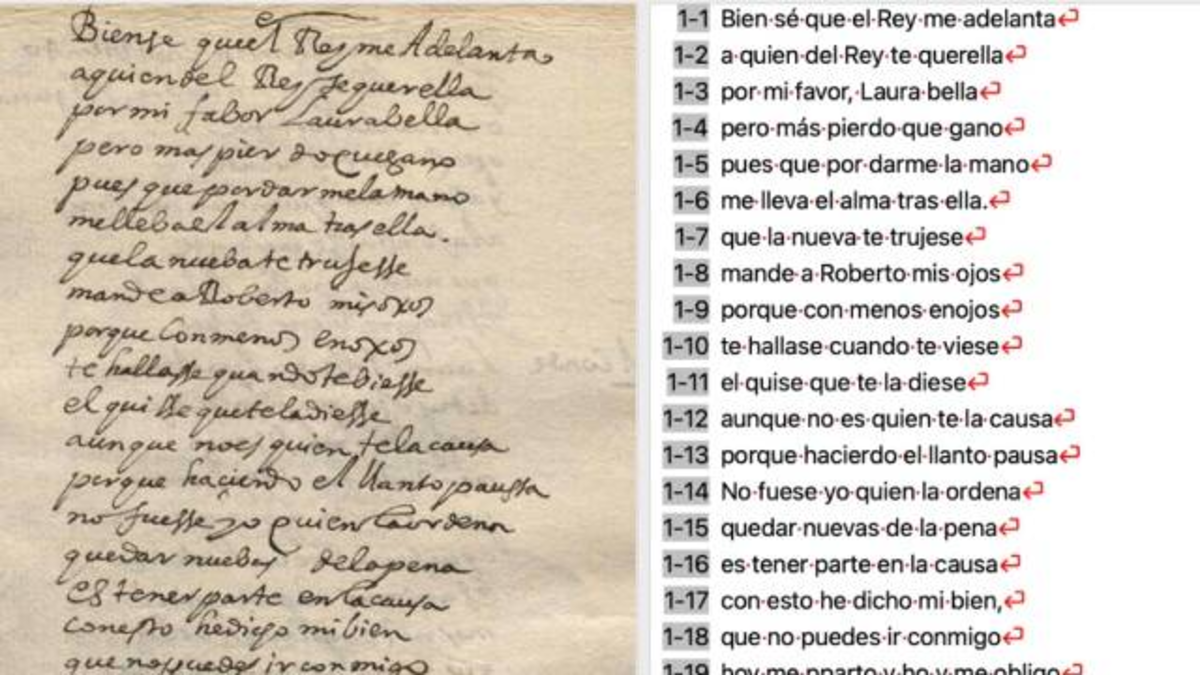 Biense queel Rey me Adelanta
aquiendel Rey sequerella
por mi fabor Laurabella
pero mas pierdoquegano
pues que pordarmelamano
mellebael alma tras ella.
quela nuebate trusesse
mandea Roberto mis oxos
porque Conmenos enoxos
te hallasse quandotebiesse
el quisse queteladiesse
aunque noes quien telacausa
porque haciendo el llanto paussa
no fuesse yo quien laordena
quedar nuebas delapena
es tener parte enlacausa
conesto hedicho mi bien
que nopuedes ir conmigo
1-1 Bien sé que el Rey me adelanta
1-2 a quien del Rey te querella
1-3 por mi favor, Laura bella
1-4 pero más pierdo que gano
1-5 pues que por darme la mano
1-6 me lleva el alma tras ella.
1-7 que la nueva te trujese
1-8 mande a Roberto mis ojos
1-9 porque con menos enojos
1-10 te hallase cuando te viese
1-11 el quise que te la diese
1-12 aunque no es quien te la causa
1-13 porque hacierdo el llanto pausa
1-14 No fuese yo quien la ordena
1-15 quedar nuevas de la pena
1-16 es tener parte en la causa
1-17 con esto he dicho mi bien,
1-18 que no puedes ir conmigo
1-19 hoy me pparto y ho y me obligo